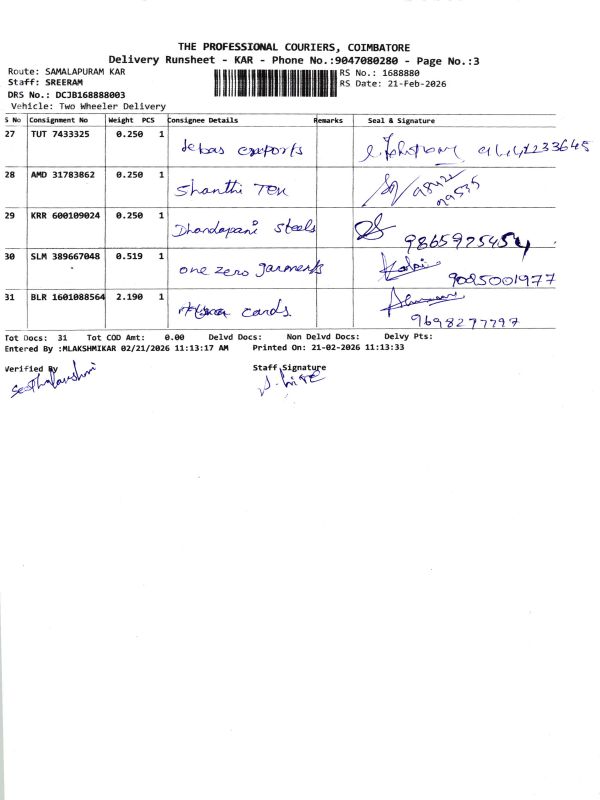 THE PROFESSIONAL COURIERS, COIMBATORE
Delivery Runsheet - KAR - Phone No.:9047080280 - Page No.:3
Route: SAMALAPURAM KAR
Staff: SREERAM
DRS No.: DCJB168888003
Vehicle: Two Wheeler Delivery
RS No.: 1688880
RS Date: 21-Feb-2026
S No Consignment No Weight PCS Consignee Details Remarks Seal & Signature
27 TUT 7433325 0.250 1 debas exports
28 AMD 31783862 0.250 1 Shanthi Tex
29 KRR 600109024 0.250 1 Dhandapani Steels 9865975454
30 SLM 389667048 0.519 1 one zero garments 9025001977
31 BLR 1601088564 2.190 1 cards 9698277797
Tot Docs: 31 Tot COD Amt: 0.00 Delvd Docs: Non Delvd Docs: Delvy Pts:
Entered By :MLAKSHMIKAR 02/21/2026 11:13:17 AM Printed On: 21-02-2026 11:13:33
Verified By
Staff Signature